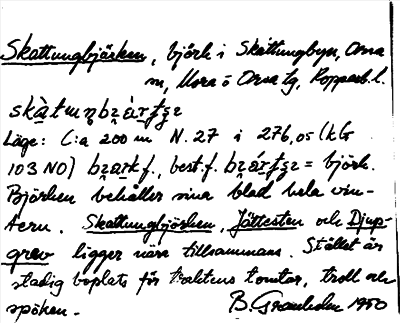 Skattungbjörken, björk i Skattungbyn, Orsa
sn, Mora o Orsa tg, Kopparb. l.
skàtuŋbzàrʈʂɛ
Läge: C:a 200 m N. 27 i 276,05 (kbl
103 NO) bzark f., best. f. bzárʈʂɛ = björk.
Björken behåller sina blad hela vin-
tern. Skattungbjörken, Jättesten och Djup-
grav ligger nära tillsammans. Stället är
stadig boplats för traktens tomtar, troll och
spöken. B. Granholm 1950